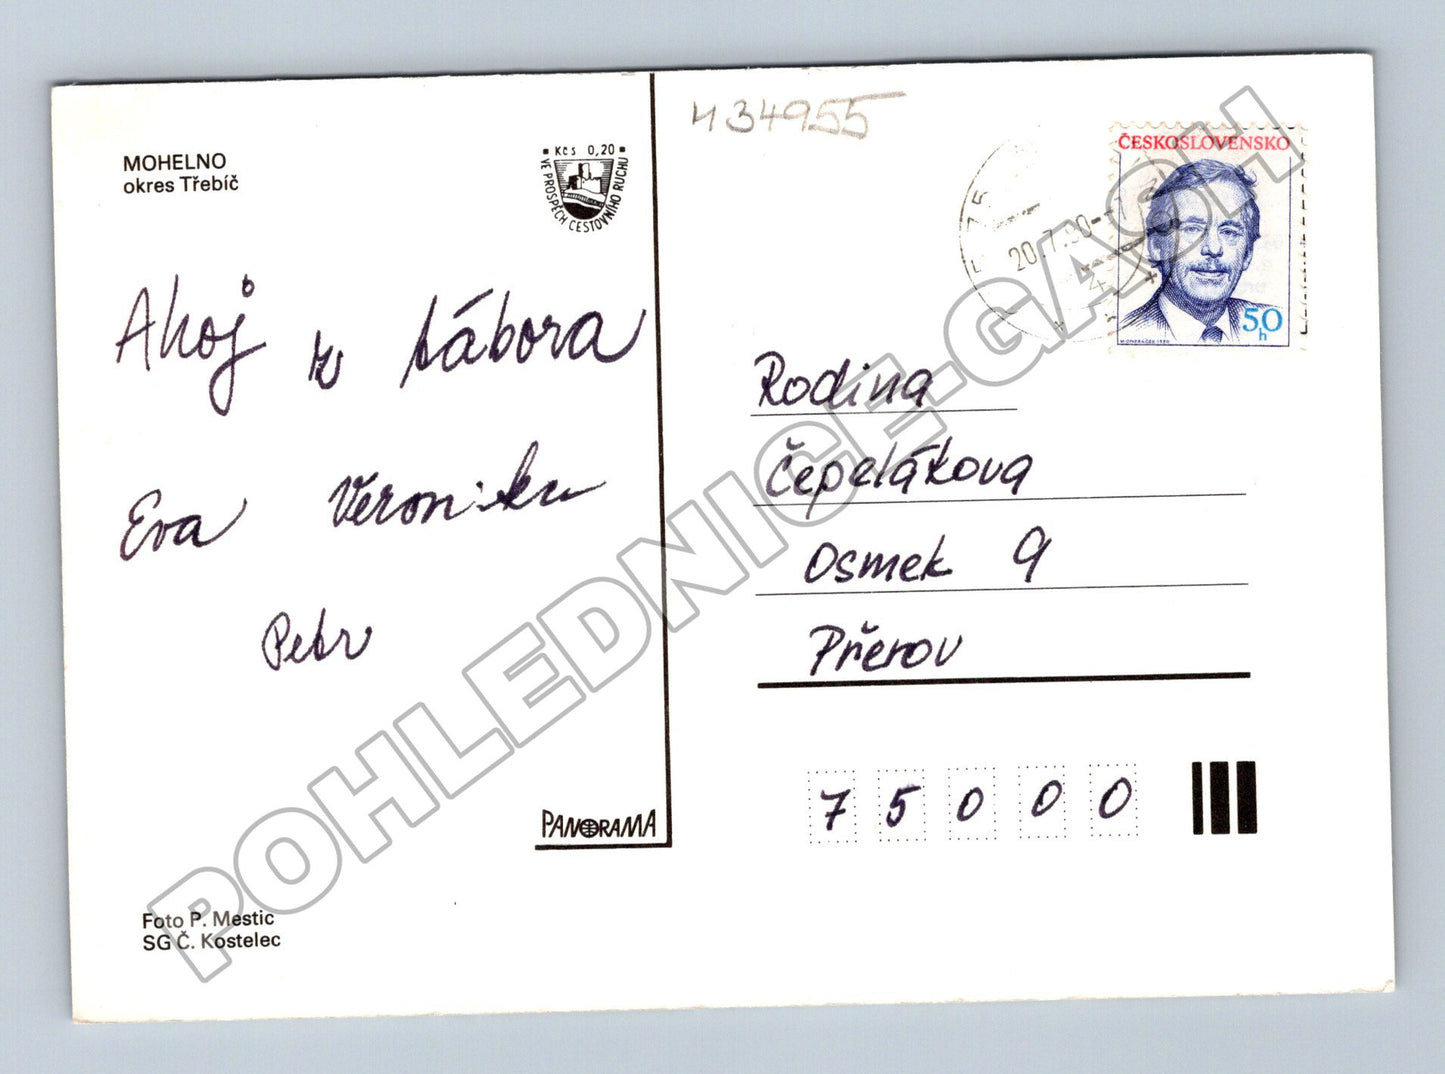 MOHELNO
okres Třebíč
Kčs 0,20
VE PROSPĚCH CESTOVNÍHO RUCHU
Ahoj z tábora
Eva Veronika
Petr
PANORAMA
Foto P. Mestic
SG Č. Kostelec
434955
20.7.90-7
ČESKOSLOVENSKO
50
h
Rodina
Čepelákova
Osmek 9
Přerov
75000
POHLEDNICE-GASH